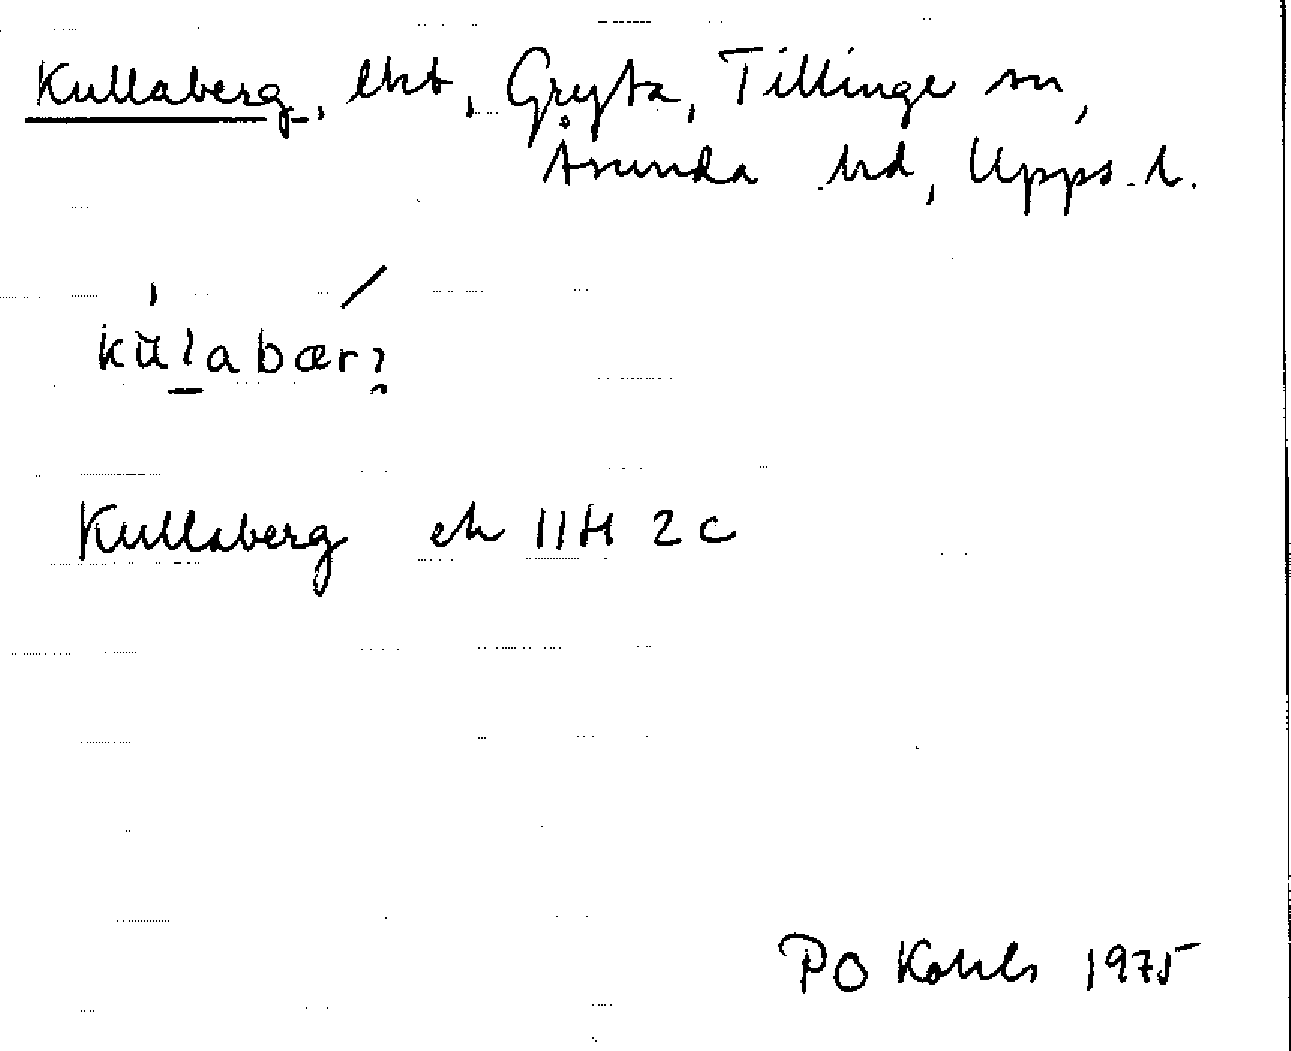 Kullaberg, lht, Gryta, Tillinge sn,
Åsunda hd, Upps. l.
kùlabærj
Kullaberg ek 11H 2c
PO Kohls 1975